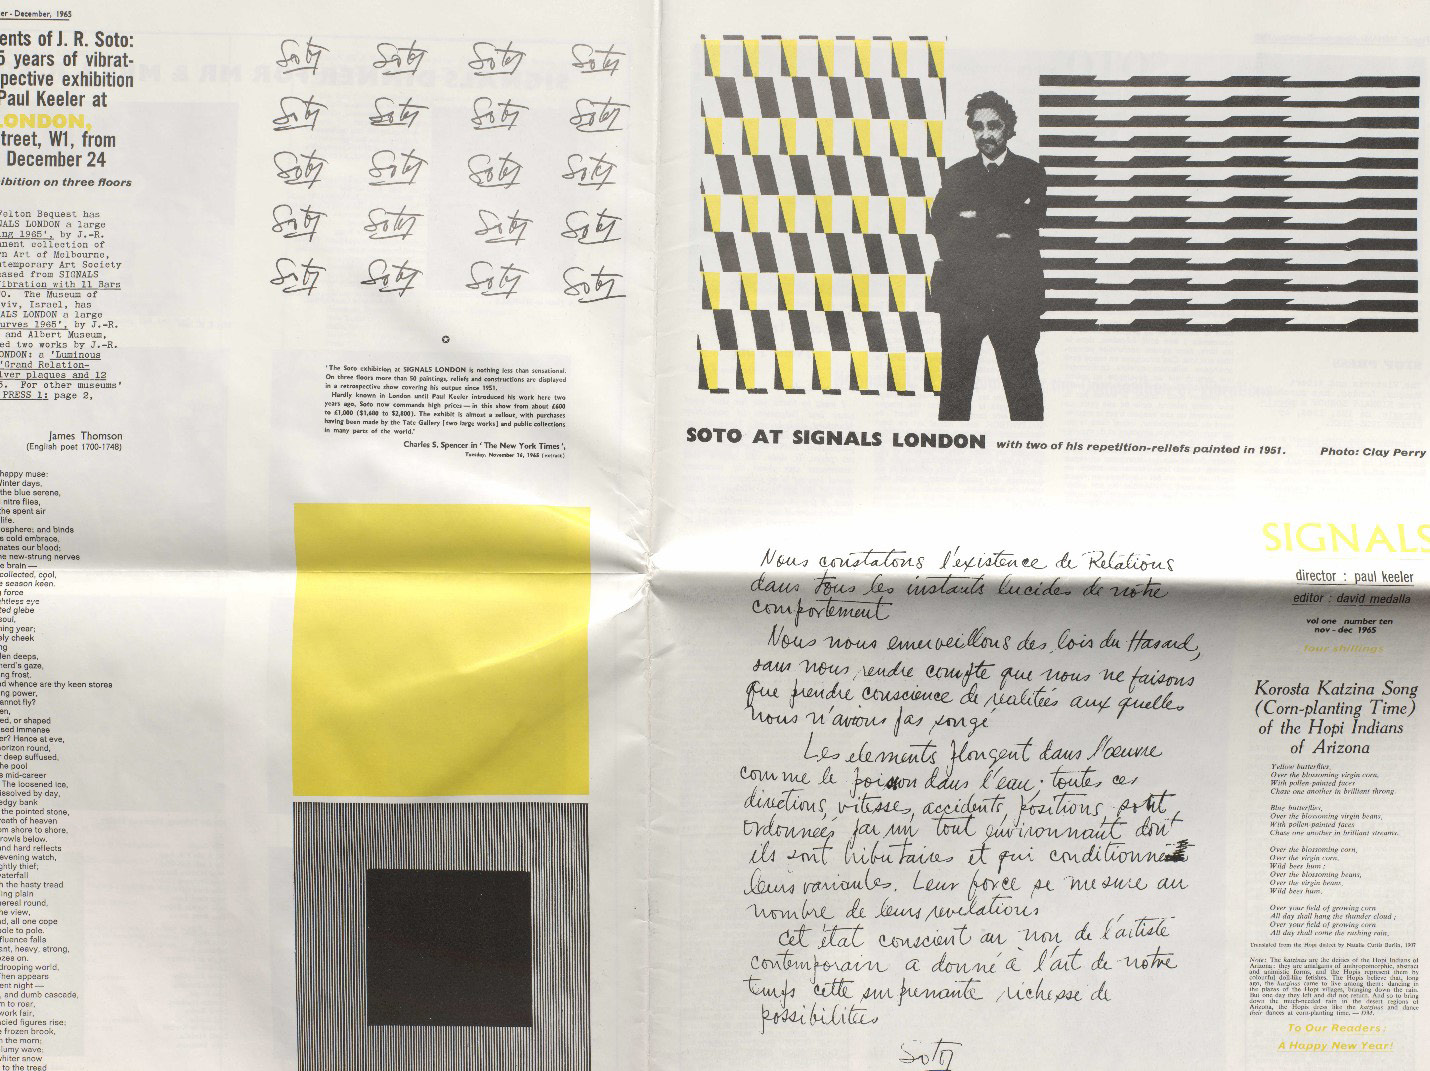 er - December, 1965
ents of J. R. Soto:
5 years of vibrat-
pective exhibition
Paul Keeler at
LONDON,
treet, W1, from
December 24
ibition on three floors
elton Bequest has
NALS LONDON a large
ing 1965', by J.-R.
anent collection of
rn Art of Melbourne,
temporary Art Society
hased from SIGNALS
Vibration with 11 Bars
O. The Museum of
viv, Israel, has
ALS LONDON a large
urves 1965', by J.-R.
and Albert Museum,
ed two works by J.-R.
ONDON: a 'Luminous
'Grand Relation-
lver plaques and 12
5. For other museums'
PRESS 1: page 2,
James Thomson
(English poet 1700-1748)
happy muse:
Winter days,
the blue serene,
nitre flies,
the spent air
life.
osphere; and binds
s cold embrace,
nates our blood;
he new-strung nerves
e brain —
collected, cool,
e season keen.
force
htless eye
ted glebe
soul,
ning year;
ely cheek
ng
len deeps,
herd's gaze,
ng frost,
d whence are thy keen stores
ng power,
annot fly?
en,
ed, or shaped
sed immense
er? Hence at eve,
horizon round,
deep suffused,
he pool
s mid-career
The loosened ice,
issolved by day,
edgy bank
the pointed stone,
reath of heaven
om shore to shore,
rowls below.
and hard reflects
evening watch,
ghtly thief;
waterfall
h the hasty tread
ing plain
hereal round,
he view,
d, all one cope
pole to pole.
fluence falls
ent, heavy, strong,
ozes on.
drooping world,
Then appears
ent night —
, and dumb cascade,
m to roar,
work fair,
ncied figures rise;
e frozen brook,
n the morn;
lumy wave;
whiter snow
to the tread
Soto Soto Soto Soto
Soto Soto Soto Soto
Soto Soto Soto Soto
Soto Soto Soto Soto
Soto Soto Soto Soto
'The Soto exhibition at SIGNALS LONDON is nothing less than sensational.
On three floors more than 50 paintings, reliefs and constructions are displayed
in a retrospective show covering his output since 1951.
Hardly known in London until Paul Keeler introduced his work here two
years ago, Soto now commands high prices — in this show from about £600
to £1,000 ($1,680 to $2,800). The exhibit is almost a sellout, with purchases
having been made by the Tate Gallery [two large works] and public collections
in many parts of the world.'
Charles S. Spencer in 'The New York Times',
Tuesday, November 16, 1965 (extract)
SOTO AT SIGNALS LONDON with two of his repetition-reliefs painted in 1951. Photo: Clay Perry
Nous constatons l'existence de Relations
dans tous les instants lucides de notre
comportement
Nous nous emerveillons des lois du Hasard,
sans nous rendre compte que nous ne faisons
que prendre conscience de realitées aux quelles
nous n'avions pas songé
Les elements plongent dans l'œuvre
comme le poisson dans l'eau; toutes ces
directions, vitesses, accidents, positions, sont
ordonnées par un tout environnant dont
ils sont tributaires et qui conditionne
leurs variantes. Leur force se mesure au
nombre de leurs revelations
Cet état conscient ou non de l'artiste
contemporain a donné à l'art de notre
temps cette surprenante richesse de
possibilitées
Soto
SIGNALS
director : paul keeler
editor : david medalla
vol one number ten
nov - dec 1965
four shillings
Korosta Katzina Song
(Corn-planting Time)
of the Hopi Indians
of Arizona
Yellow butterflies,
Over the blossoming virgin corn,
With pollen-painted faces
Chase one another in brilliant throng.
Blue butterflies,
Over the blossoming virgin beans,
With pollen-painted faces
Chase one another in brilliant streams.
Over the blossoming corn,
Over the virgin corn,
Wild bees hum;
Over the blossoming beans,
Over the virgin beans,
Wild bees hum.
Over your field of growing corn
All day shall hang the thunder cloud;
Over your field of growing corn
All day shall come the rushing rain.
Translated from the Hopi dialect by Natalie Curtis Burlin, 1907
Note: The katzinas are the deities of the Hopi Indians of
Arizona: they are amalgams of anthropomorphic, abstract
and animistic forms, and the Hopis represent them by
colourful doll-like fetishes. The Hopis believe that, long
ago, the katzinas came to live among them: dancing in
the plazas of the Hopi villages, bringing down the rain.
But one day they left and did not return. And so to bring
down the much-needed rain in the desert regions of
Arizona, the Hopis dress like the katzinas and dance
their dances at corn-planting time. — DM.
To Our Readers:
A Happy New Year!